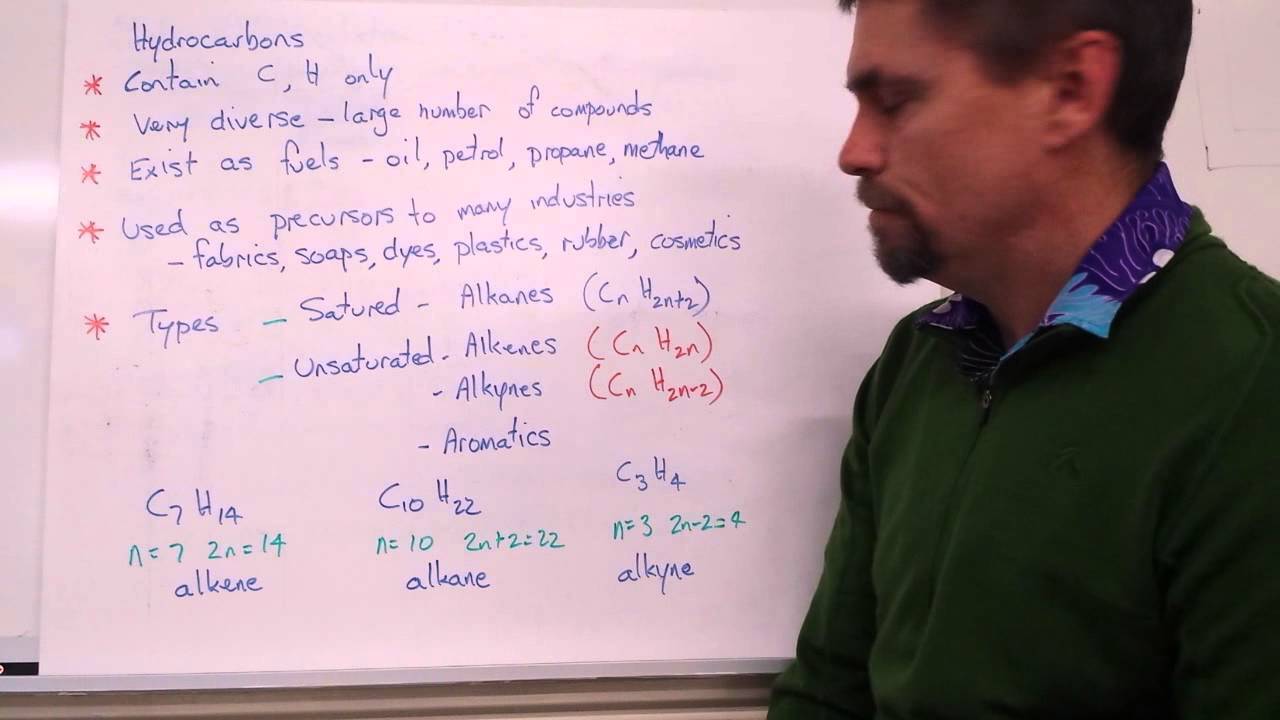 Hydrocarbons
* Contain C, H only
* Very diverse - large number of compounds
* Exist as fuels - oil, petrol, propane, methane
* Used as precursors to many industries
- fabrics, soaps, dyes, plastics, rubber, cosmetics
* Types - Satured - Alkanes (CnH2n+2)
- Unsaturated - Alkenes (CnH2n)
- Alkynes (CnH2n-2)
- Aromatics
C7H14 C10H22 C3H4
n=7 2n=14 n=10 2n+2=22 n=3 2n-2=4
alkene alkane alkyne